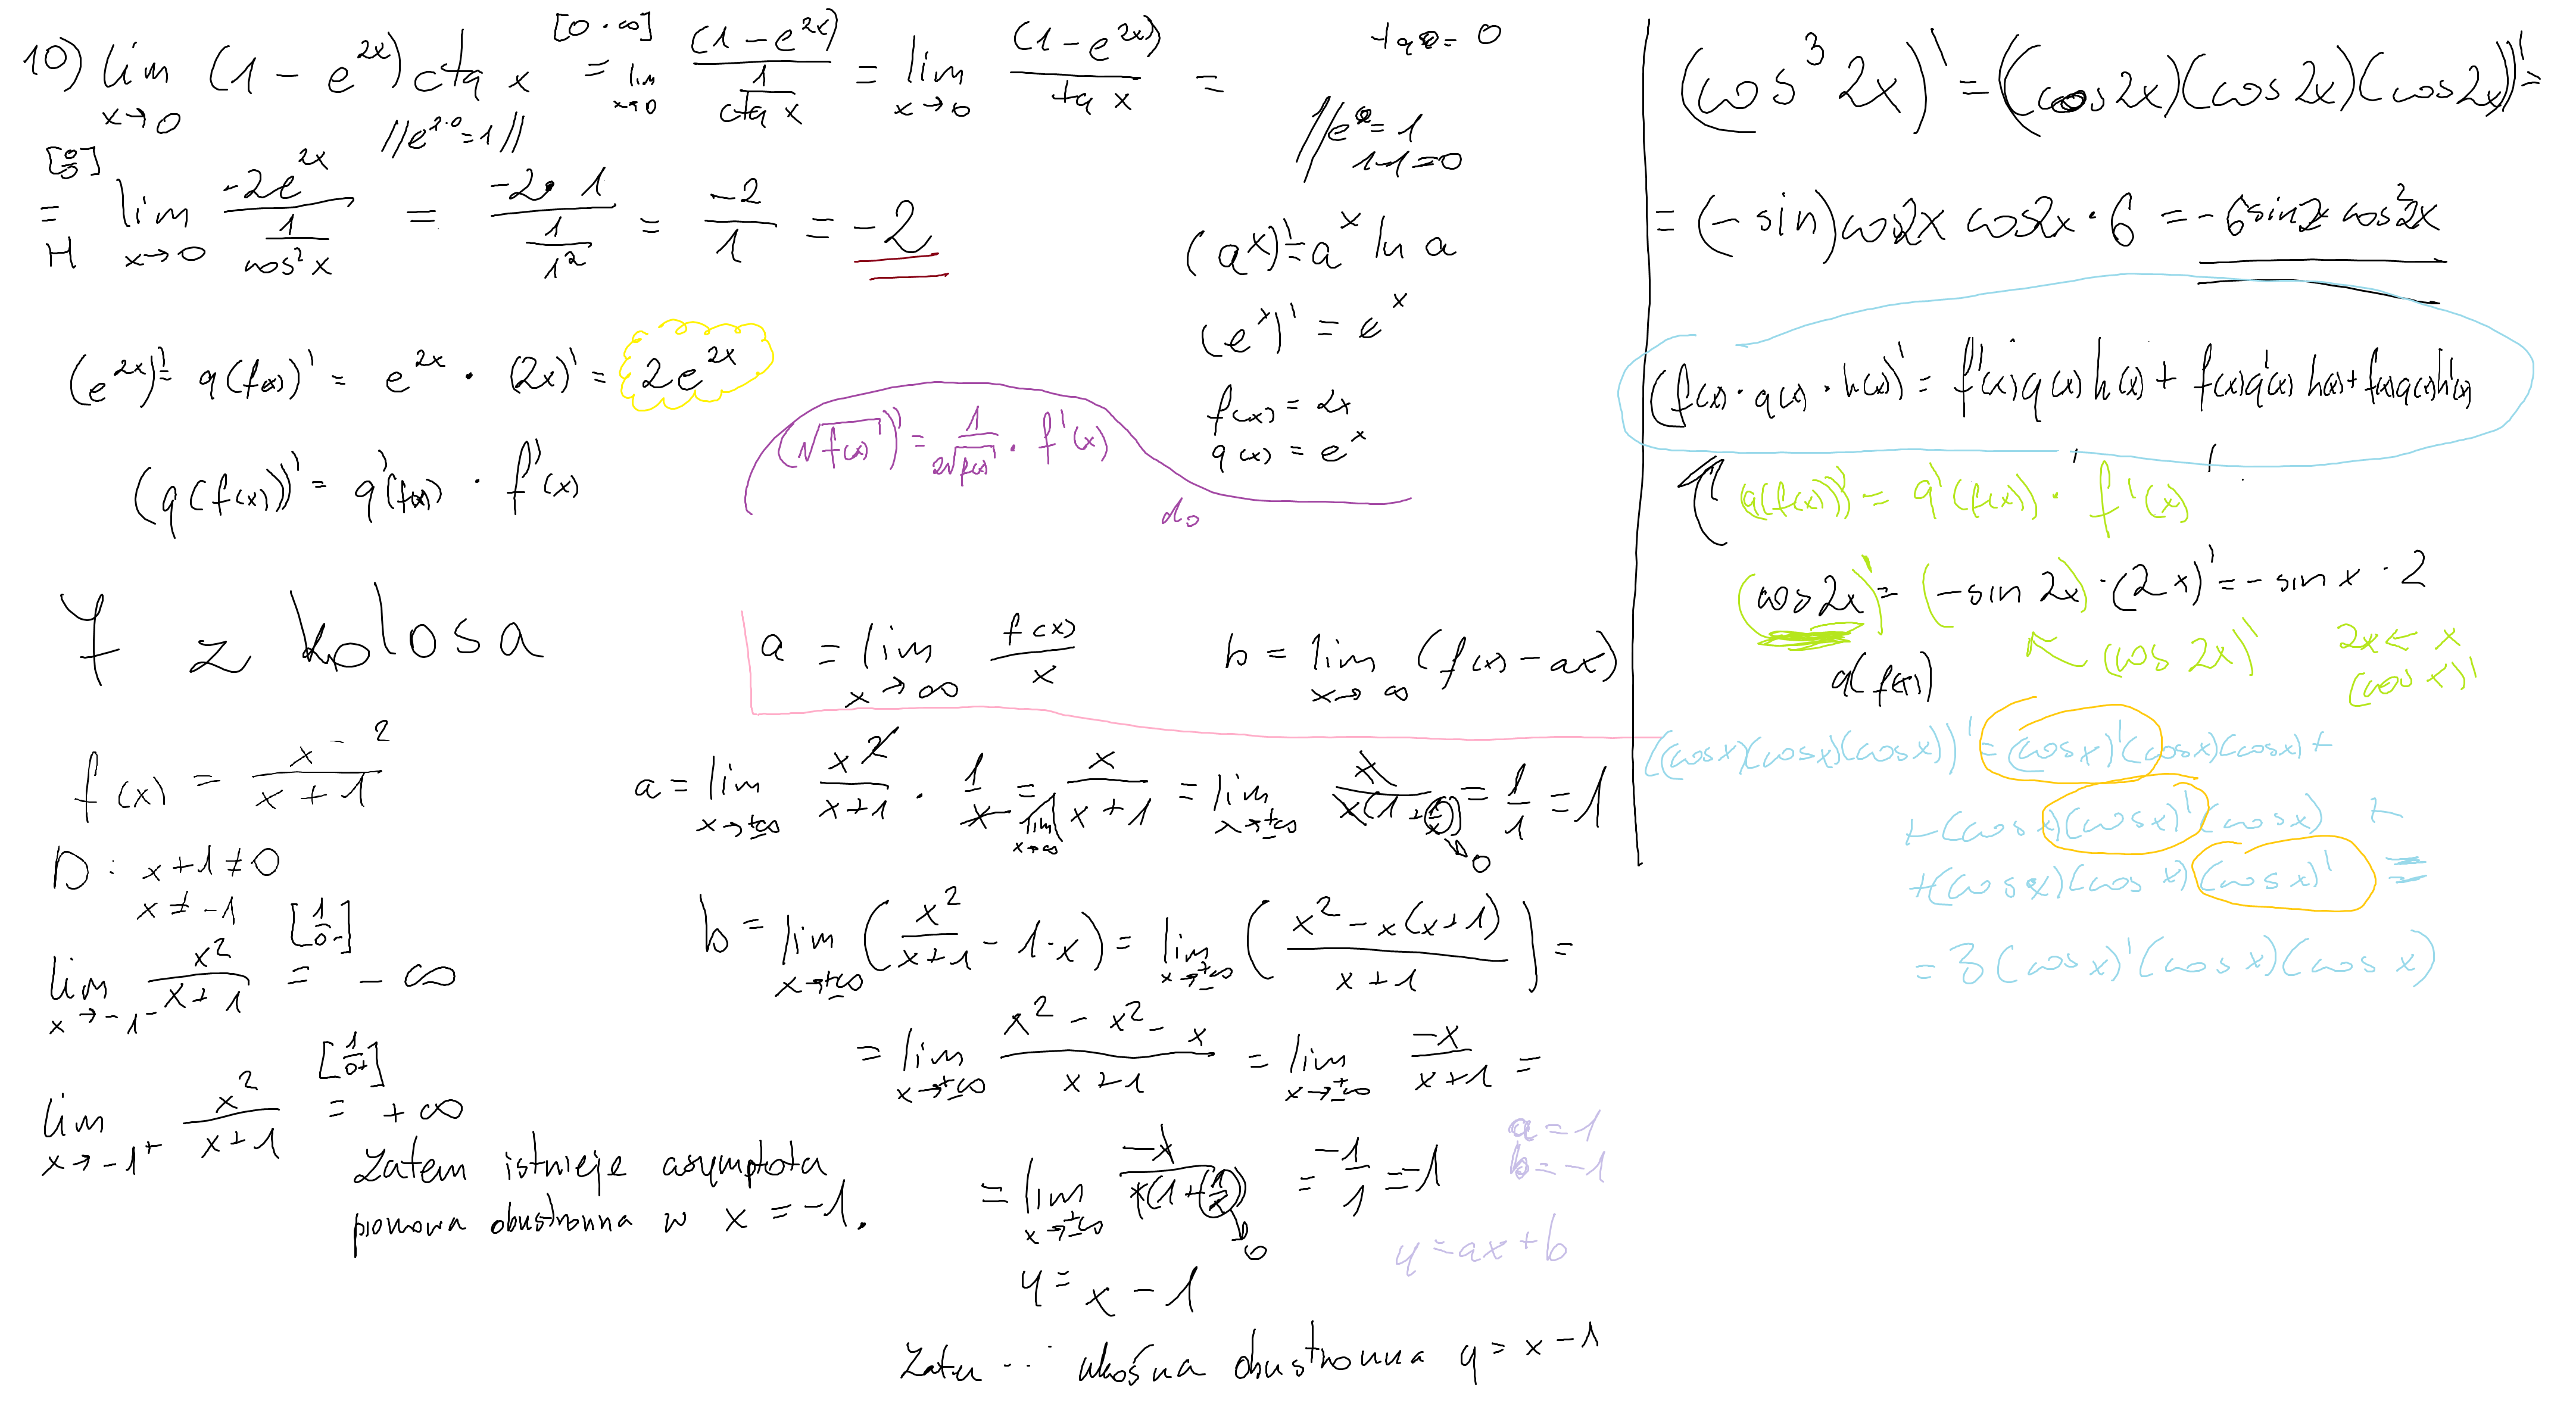 10) lim x→0 (1 - e^{2x}) ctg x [0·∞] = lim x→0 (1-e^{2x}) / (1/ctg x) = lim x→0 (1-e^{2x}) / tg x =
//e^{2·0}=1//
tg 0 = 0
//e^0 = 1
1-1=0
[0/0] =H lim x→0 -2e^{2x} / (1/cos²x) = -2·1 / (1/1²) = -2/1 = -2
(a^x)' = a^x ln a
(e^x)' = e^x
f(x) = 2x
g(x) = e^x
(e^{2x})' = g(f(x))' = e^{2x} · (2x)' = 2e^{2x}
(g(f(x)))' = g'(f(x)) · f'(x)
(√f(x))' = 1/(2√f(x)) · f'(x)
do
7 z kolosa
a = lim x→∞ f(x)/x
b = lim x→∞ (f(x) - ax)
f(x) = x^2 / (x+1)
D: x+1≠0
x≠-1
lim x→-1- x²/(x+1) = [1/0-] -∞
lim x→-1+ x²/(x+1) = [1/0+] +∞
Zatem istnieje asymptota
pionowa obustronna w x = -1.
a = lim x→±∞ x²/(x+1) · 1/x = lim x→∞ x/(x+1) = lim x→±∞ x/(x(1+1/x)) = 1/1 = 1
→0
b = lim x→±∞ (x²/(x+1) - 1·x) = lim x→±∞ ((x² - x(x+1))/(x+1)) =
= lim x→±∞ (x² - x² - x)/(x+1) = lim x→±∞ -x/(x+1) =
= lim x→±∞ -x/(x(1+(1/x))) = -1/1 = -1
→0
a=1
b=-1
y=ax+b
y = x - 1
Zatem ... ukośna obustronna y = x - 1
(cos³ 2x)' = ((cos2x)(cos2x)(cos2x))' =
= (-sin)cos2x cos2x · 6 = -6sin2x cos²2x
(f(x) · g(x) · h(x))' = f'(x)g(x)h(x) + f(x)g'(x)h(x) + f(x)g(x)h'(x)
(g(f(x)))' = g'(f(x)) · f'(x)
(cos2x)' = (-sin 2x) · (2x)' = -sin x · 2
g(f(x))
↖ (cos 2x)'
2x ← x
(cos x)'
((cosx)(cosx)(cosx))' = (cosx)'(cosx)(cosx) +
+(cosx)(cosx)'(cosx) +
+(cosx)(cos x)(cosx)' =
= 3(cosx)'(cosx)(cos x)